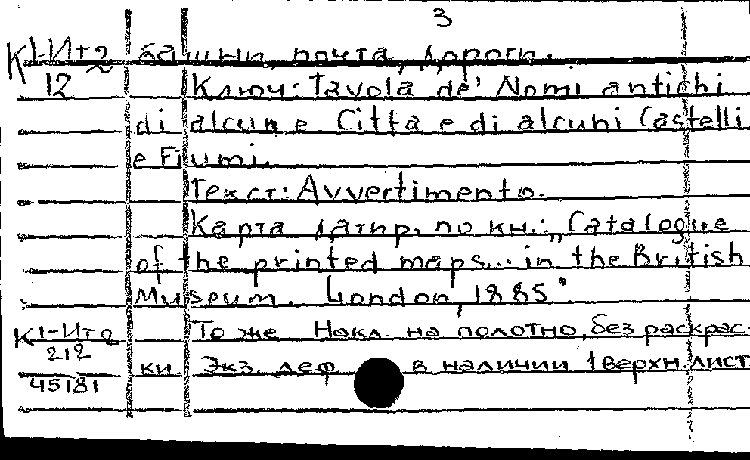 3
К1-Ит2 башни, почта, дороги.
12 Ключ: Tavola de' Nomi antichi
di alcune Citta e di alcuni Castelli
e Fiumi.
Текст: Avvertimento.
Карта датир. по кн.: „Catalogue
of the printed maps... in the British
Museum. London, 1885"
К1-Ит2 То же Накл. на полотно, без раскрас-
212 ки Экз. деф. в наличии 1 верхн. лист
45181